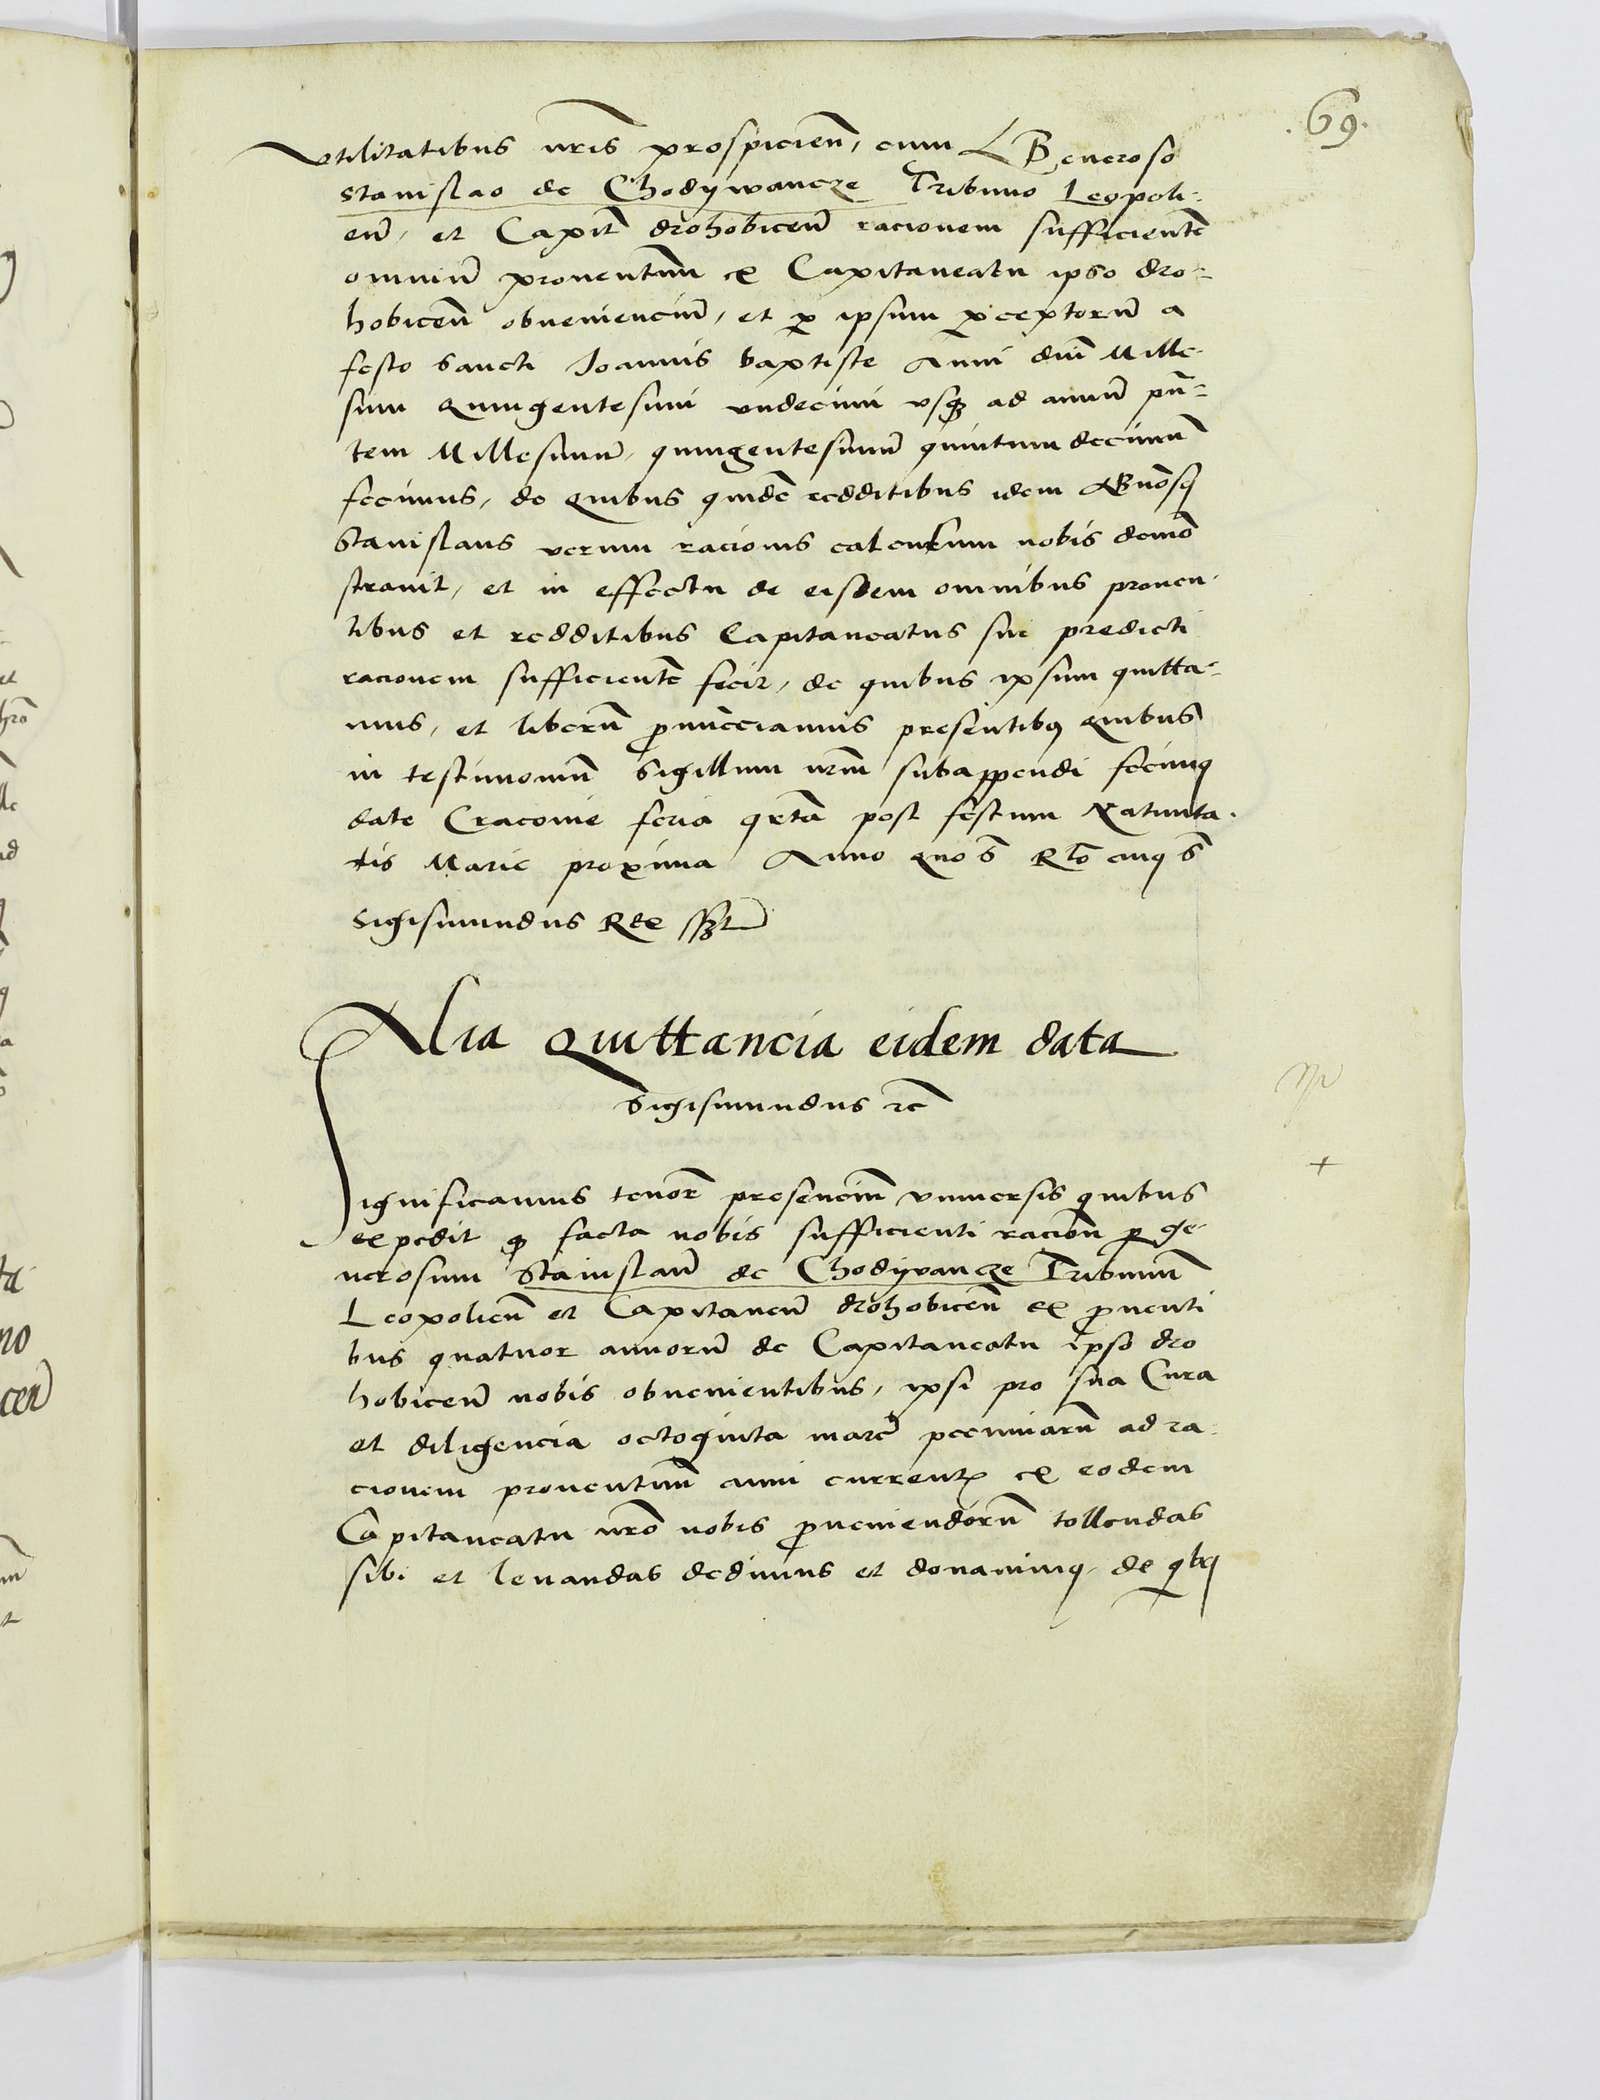 .69.
Vtilitatibus nr̃is prospicien̄, cum Generoso
Stanislao de Chodywancze Tribuno Leopoli-
en̄, et Capit̄ drohobicen̄ racionem sufficientē
omniū prouentuum ex Capitaneatu ipso dro-
hobicen̄ obueniencium, et ꝑ ipsum ꝑceptorū a
festo Sancti Joannis baptiste Anni dn̄i Mille-
simi Quingentesimi vndecimi vsqȝ ad annū pn̄-
tem Millesimū, quingentesimū quintum decimū
fecimus, de Quibus quidē redditibus idem
Stanislaus verum racionis calculum nobis demō
strauit, et in effectu de eisdem omnibus prouen-
tibus et redditibus Capitaneatus sui predicti
racionem sufficientē fecit, de quibus ipsum quitta-
mus, et liberū ꝓnuncciamus presentibꝰ Quibus
in testimoniū Sigillum nr̄m subappendi fecimꝰ
date Cracouie feria qrtā post festum Natiuita-
tis Marie proxima Anno quo s̄ Rto eiuꝰ s̄
Sigismundus Rex sszt
Alia Quittancia eidem data
Sigismundus rc̄
Significamus tenor̄ presencium vniuersis quibus
expedit ꝙ facta nobis sufficienti racion̄ ꝑ ge-
nerosum Stanislaū de Chodywancze Tribunū
Leopolien̄ et Capitaneū drohobicen̄ ex ꝓuenti
bus quatuor annorū de Capitaneatu ipso dro
hobicen̄ nobis obuenientibus, ipsi pro sua Cura
et diligencia octoginta marc̄ pecuniarū ad ra-
cionem prouentuum anni currentꝭ ex eodem
Capitaneatu nr̄o nobis ꝓueniendorū tollendas
sibi et leuandas dedimus et donauimꝰ, de qbꝰ
+